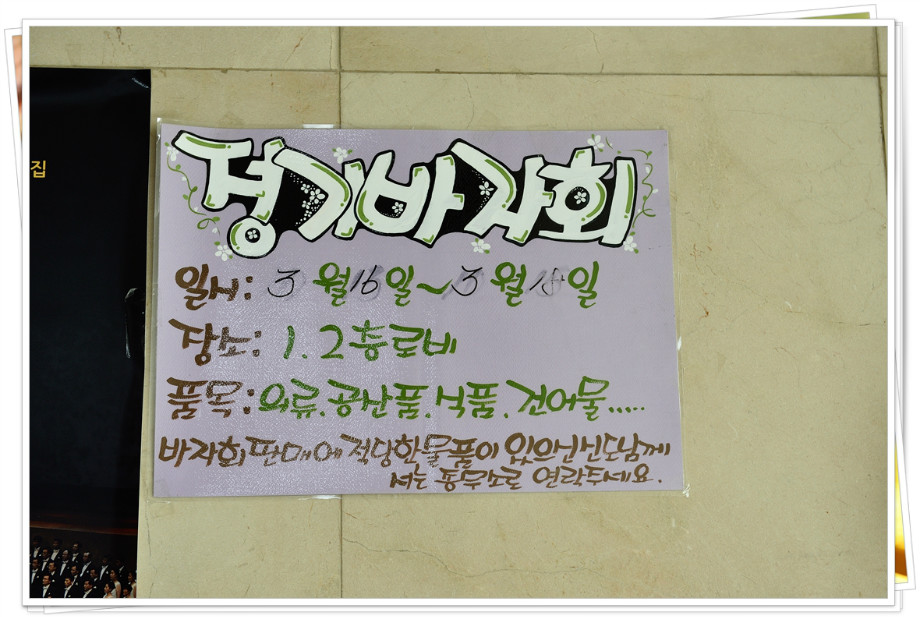 집
정기바자회
일시: 3월16일~3월18일
장소: 1.2층로비
품목: 의류.공산품.식품.건어물.....
바자회판매에 적당한물품이 있으신신도님께
서는 종무소로 연락주세요.